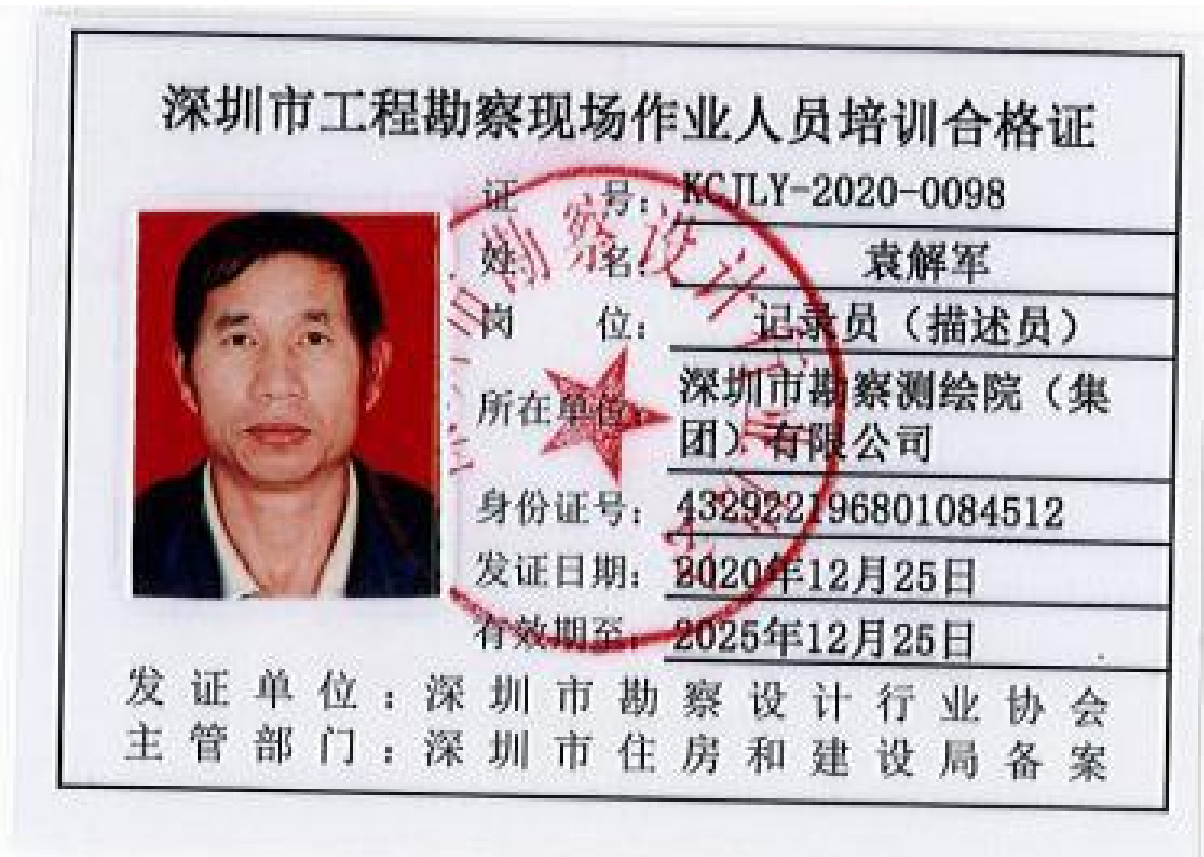 深圳市工程勘察现场作业人员培训合格证
证号：KCJLY-2020-0098
姓名：袁解军
岗位：记录员（描述员）
所在单位：深圳市勘察测绘院（集
团）有限公司
身份证号：432922196801084512
发证日期：2020年12月25日
有效期至：2025年12月25日
发证单位：深圳市勘察设计行业协会
主管部门：深圳市住房和建设局备案